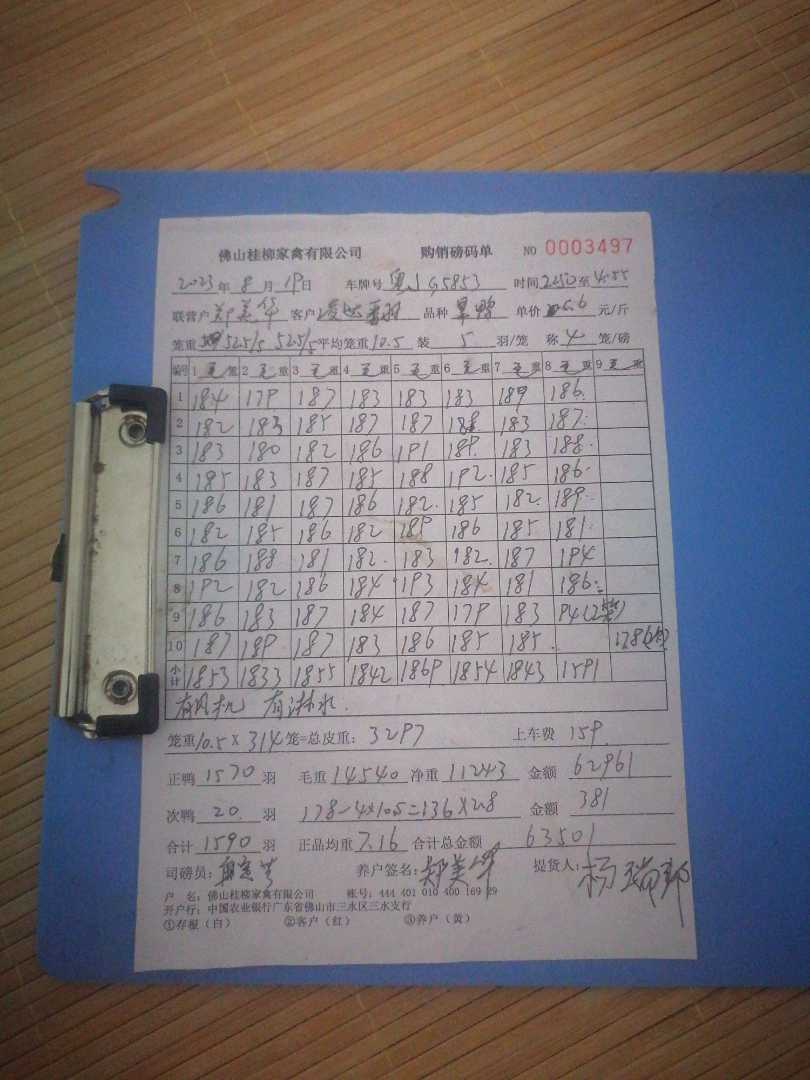 佛山桂柳家禽有限公司 购销磅码单 NO 0003497
2023年 8 月 19日 车牌号 粤J G5853 时间 2250 至 4:55
联营户 郑美华 客户 品种 旱鸭 单价 5.6 元/斤
笼重 525/5 525/5 平均笼重 10.5 装 5 羽/笼 称 4 笼/磅
编号 1 毛重 2 毛重 3 毛重 4 毛重 5 毛重 6 毛重 7 毛重 8 毛重 9 毛重
1 184 179 187 183 183 183 189 186
2 182 183 185 187 187 188 183 187
3 183 180 182 186 191 189 183 188
4 185 183 187 185 188 192 185 186
5 186 181 187 186 182 185 182 189
6 182 185 186 182 189 186 185 181
7 186 188 181 182 183 182 187 194
8 192 182 186 184 193 184 181 186
9 186 183 187 184 187 179 183 94(2笼)
10 187 189 187 183 186 185 185 178
小计 1853 1833 1855 1842 1869 1854 1843 1591
有风机 有淋水.
笼重 10.5 X 314 笼=总皮重: 3297 上车费 159
正鸭 1570 羽 毛重 14540 净重 11243 金额 62961
次鸭 20 羽 178-4×10.5=136×2.8 金额 381
合计 1590 羽 正品均重 7.16 合计总金额 63501
司磅员: 养户签名: 郑美华 提货人: 杨瑞邦
户 名: 佛山桂柳家禽有限公司 帐号: 444 401 010 400 169 29
开户行: 中国农业银行广东省佛山市三水区三水支行
①存根(白) ②客户(红) ③养户(黄)